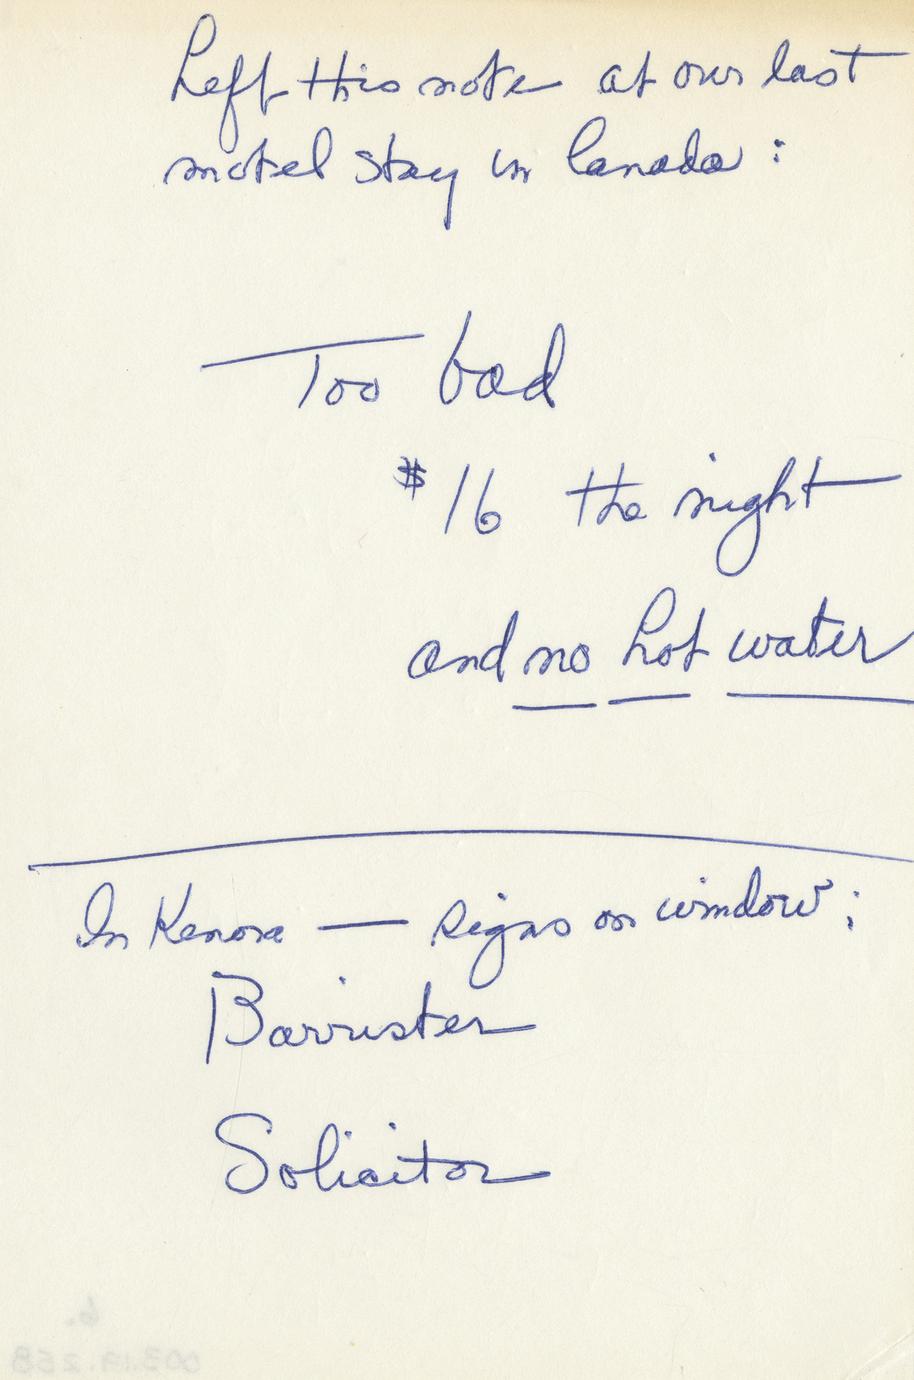 Left this note at our last
motel stay in Canada :
Too bad
$16 the night
and no hot water
In Kenora — signs on window ;
Barrister
Solicitor
6.
003.19.25B